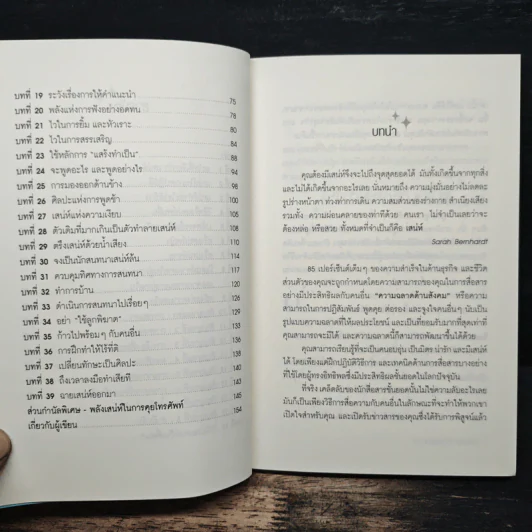 บทที่ 19 ระวังเรื่องการให้คำแนะนำ 75
บทที่ 20 พลังแห่งการฟังอย่างอดทน 78
บทที่ 21 ไวในการยิ้ม และหัวเราะ 80
บทที่ 22 ไวในการสรรเสริญ 84
บทที่ 23 ใช้หลักการ "แสร้งทำเป็น" 88
บทที่ 24 จะพูดอะไร และพูดอย่างไร 94
บทที่ 25 การมองออกด้านข้าง 98
บทที่ 26 ศิลปะแห่งการพูดช้า 100
บทที่ 27 เสน่ห์แห่งความเงียบ
บทที่ 28 ตัวเติมที่มากเกินเป็นตัวทำลายเสน่ห์
บทที่ 29 ตรึงเสน่ห์ด้วยน้ำเสียง 110
บทที่ 30 จงเป็นนักสนทนาเสน่ห์ล้น 114
บทที่ 31 ควบคุมทิศทางการสนทนา
บทที่ 32 ทำการบ้าน
บทที่ 33 ดำเนินการสนทนาไปเรื่อยๆ
บทที่ 34 อย่า "ใช้ลูกพิฆาต"
บทที่ 35 ก้าวไปพร้อมๆ กับคนอื่น
บทที่ 36 การฝึกทำให้ไร้ที่ติ
บทที่ 37 เปลี่ยนทักษะเป็นศิลปะ 135
บทที่ 38 ถึงเวลาลงมือทำเสียที
บทที่ 39 ฉายเสน่ห์ออกมา
ส่วนกำนัลพิเศษ - พลังเสน่ห์ในการคุยโทรศัพท์ 145
เกี่ยวกับผู้เขียน 154
บทนำ
คุณต้องมีเสน่ห์จึงจะไปถึงจุดสุดยอดได้ มันทั้งเกิดขึ้นจากทุกสิ่ง
และไม่ได้เกิดขึ้นจากอะไรเลย นั่นหมายถึง ความมุ่งมั่นอย่างไม่ลดละ
รูปร่างหน้าตา ท่วงท่าการเดิน ความสมส่วนของร่างกาย สำเนียงเสียง
รวมทั้ง ความผ่อนคลายของท่าทีด้วย คนเรา ไม่จำเป็นเลยว่าจะ
ต้องหล่อ หรือสวย ทั้งหมดที่จำเป็นก็คือ เสน่ห์
Sarah Bernhardt
85 เปอร์เซ็นต์เต็มๆ ของความสำเร็จในด้านธุรกิจ และชีวิต
ส่วนตัวของคุณจะถูกกำหนดโดยความสามารถของคุณในการสื่อสาร
อย่างมีประสิทธิผลกับคนอื่น "ความฉลาดด้านสังคม" หรือความ
สามารถในการปฏิสัมพันธ์ พูดคุย ต่อรอง และจูงใจคนอื่นๆ นับเป็น
รูปแบบความฉลาดที่ให้ผลประโยชน์ และเป็นที่ยอมรับมากที่สุดเท่าที่
คุณสามารถจะมีได้ และความฉลาดนี้ก็สามารถพัฒนาขึ้นได้ด้วย
คุณสามารถเรียนรู้ที่จะเป็นคนอบอุ่น เป็นมิตร น่ารัก และมีเสน่ห์
ได้ โดยเพียงแค่ฝึกปฏิบัติวิธีการ และเทคนิคด้านการสื่อสารบางอย่าง
ที่ใช้โดยผู้ทรงอิทธิพลซึ่งมีประสิทธิผลชั้นยอดในโลกปัจจุบัน
ที่จริง เคล็ดลับของนักสื่อสารชั้นยอดนั้นไม่ใช่ความลับอะไรเลย
มันก็เป็นเพียงวิธีการสื่อความกับคนอื่นในลักษณะที่จะทำให้พวกเขา
เปิดใจสำหรับคุณ และเปิดรับข่าวสารของคุณซึ่งได้รับการพิสูจน์แล้ว